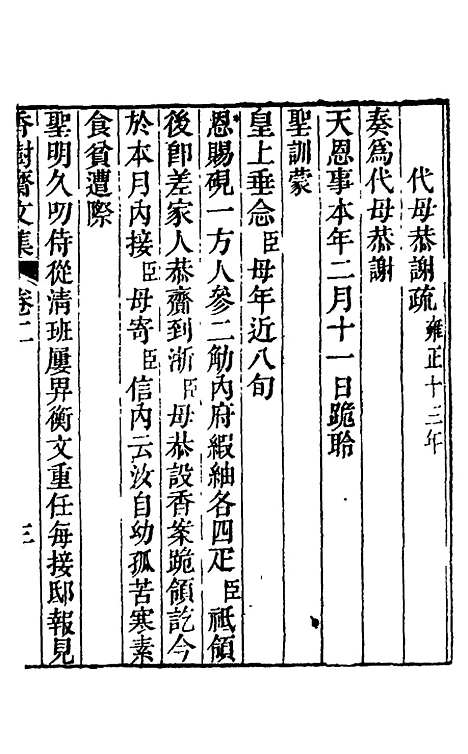 代母恭謝疏雍正十三年
奏爲代母恭謝
天恩事本年二月十一日跪聆
聖訓蒙
皇上垂念臣母年近八旬
恩賜硯一方人參二觔內府緞紬各四疋臣祗領
後卽差家人恭齎到浙臣母恭設香案跪領訖今
於本月內接臣母寄臣信內云汝自幼孤苦寒素
食貧遭際
聖明久叨侍從清班屢畀衡文重任每接邸報見
香樹齋文集 卷二 三